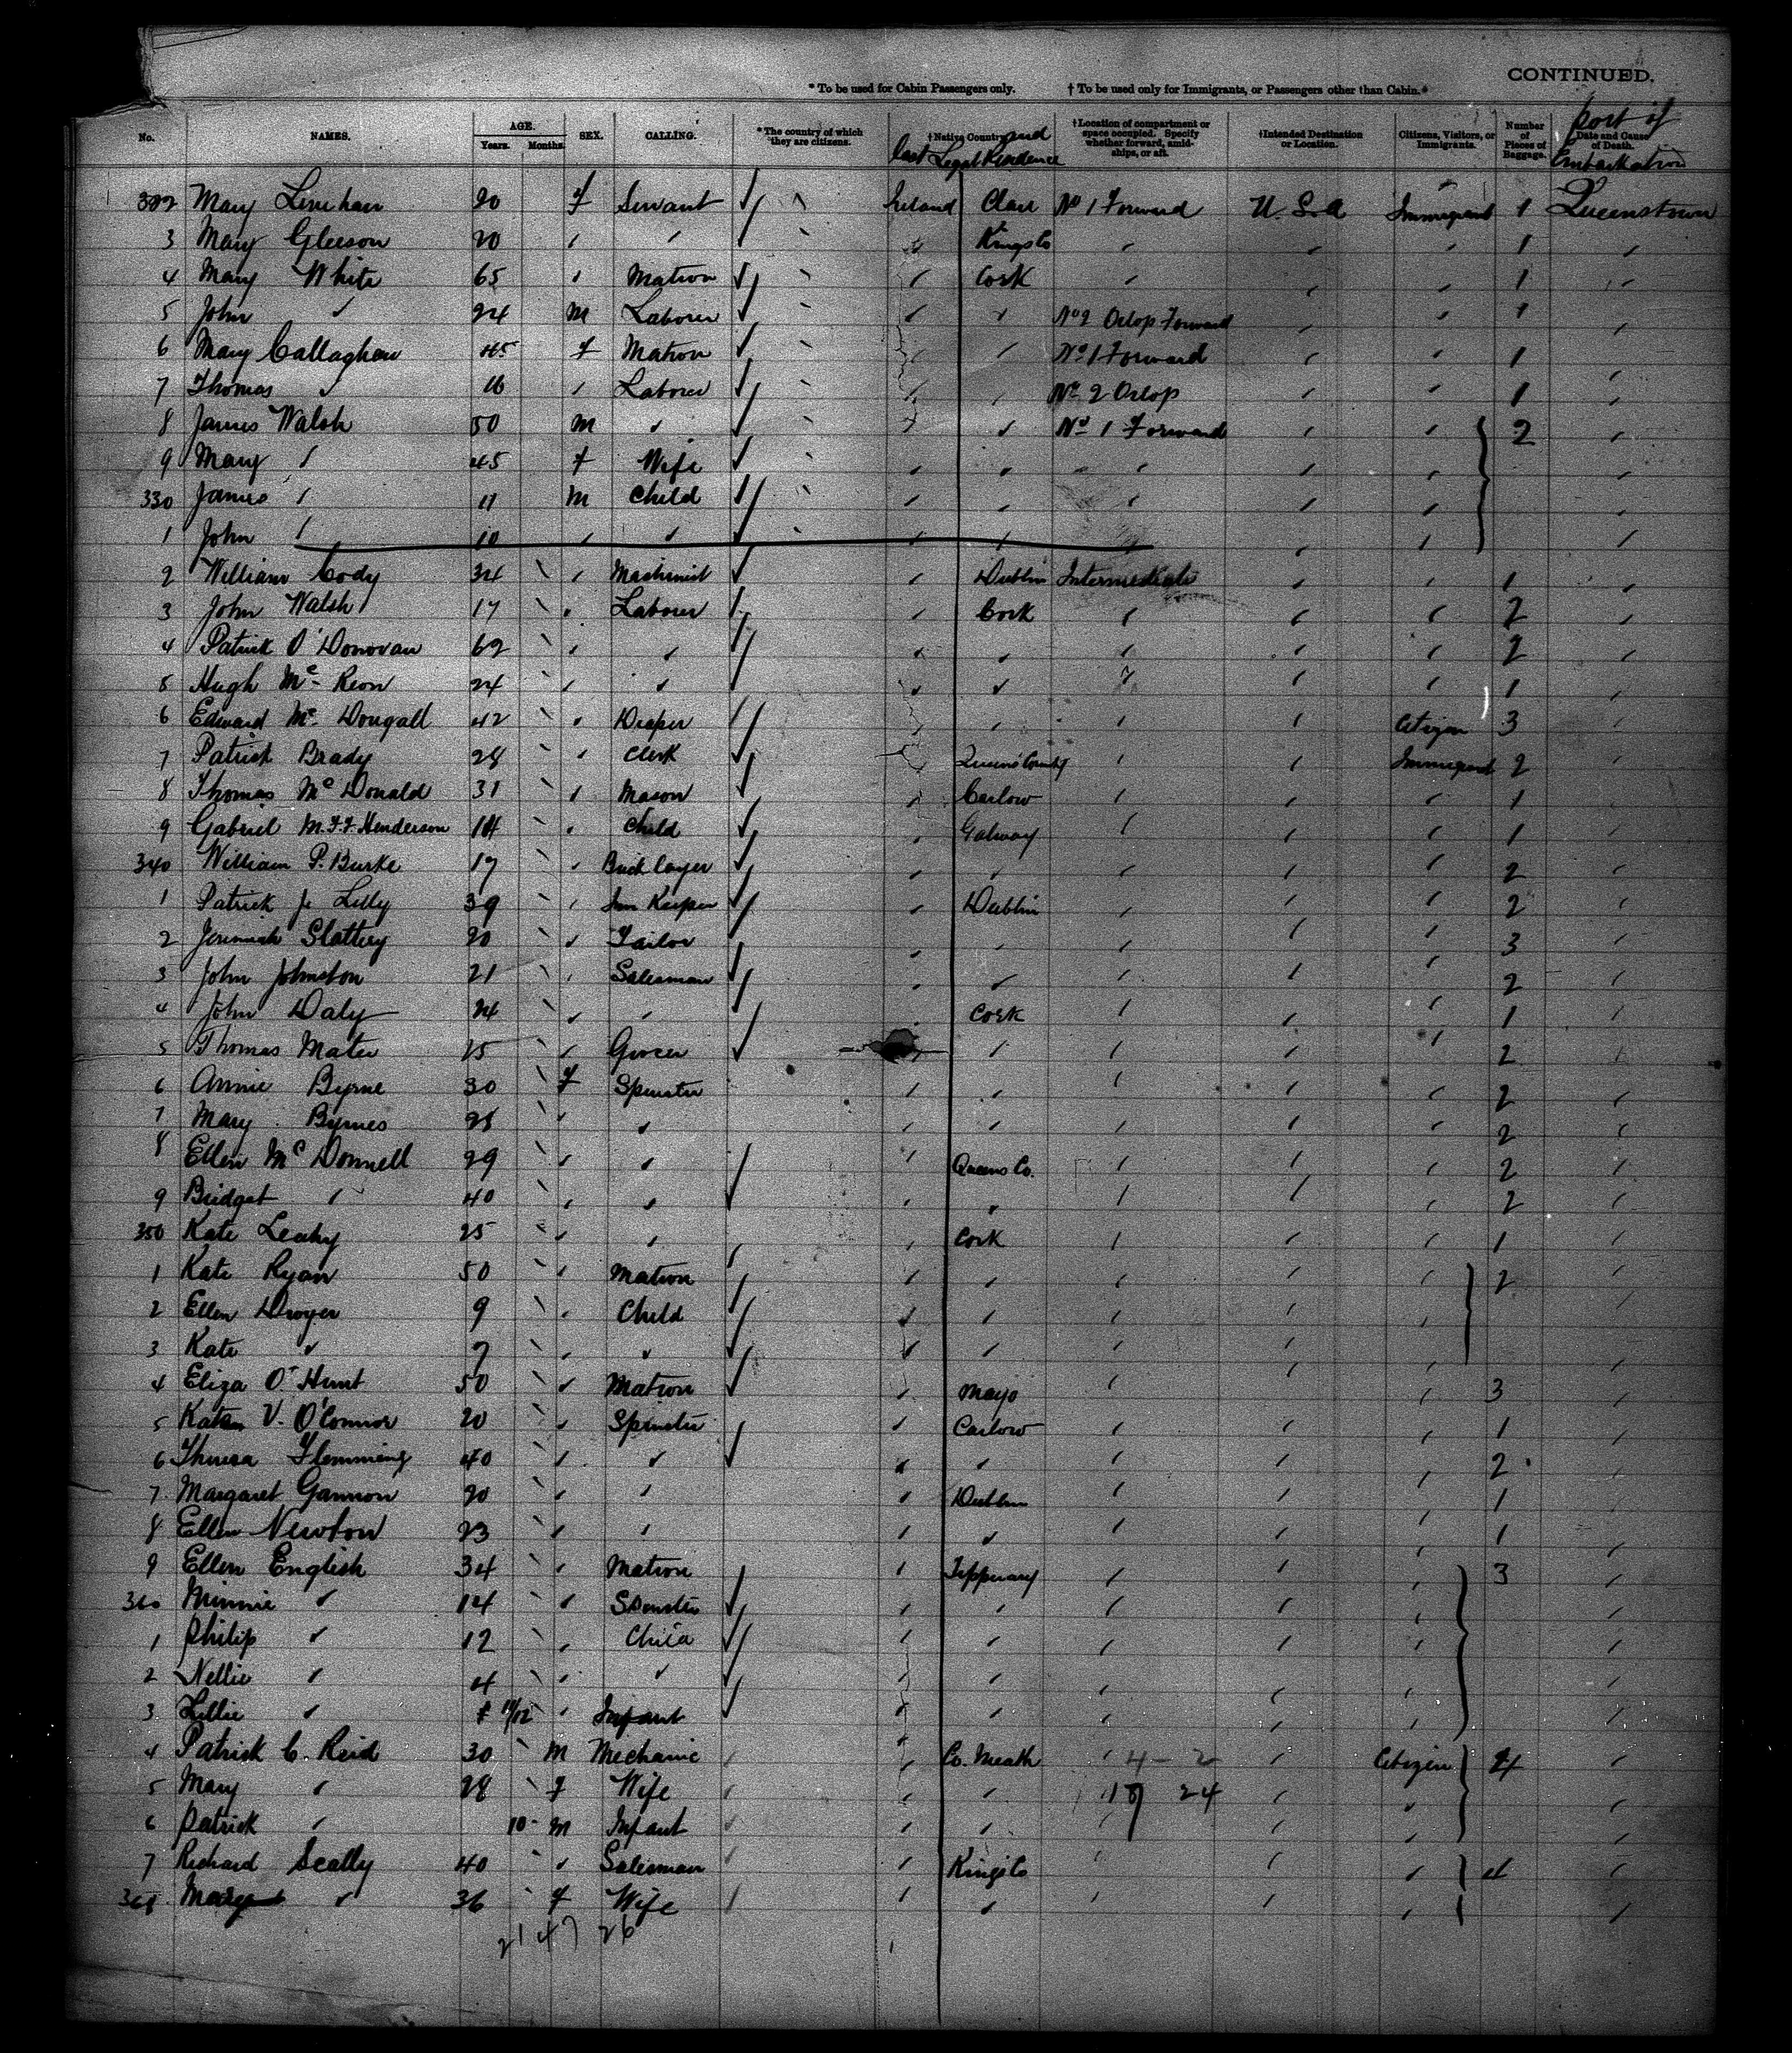 CONTINUED.
* To be used for Cabin Passengers only. † To be used only for Immigrants, or Passengers other than Cabin.
No. NAMES. AGE. Years. Months. SEX. CALLING. * The country of which they are citizens. † Native Country and last Legal Residence † Location of compartment or space occupied. Specify whether forward, amidships, or aft. † Intended Destination or Location. Citizens, Visitors, or Immigrants. Number of Pieces of Baggage. Date and Cause of Death. Port of Embarkation
322 Mary Linehan 20 f Servant Ireland Clare No 1 Forward U.S.A Immigrant 1 Queenstown
3 Mary Gleeson 20 " " " Kings Co " " " 1 "
4 Mary White 65 " Matron " Cork " " " 1 "
5 John " 24 M Laborer " " No 2 Orlop Forward " " 1 "
6 Mary Callaghan 45 f Matron " " No 1 Forward " " 1 "
7 Thomas " 16 " Laborer " " No 2 Orlop " " 1 "
8 James Walsh 50 M " " " No 1 Forward " " 2 "
9 Mary " 45 f Wife " " " " " "
330 James " 11 M Child " " " " " "
1 John " 10 " " " " " " " "
2 William Cody 34 " Machinist " Dublin Intermediate " " 1 "
3 John Walsh 17 " Laborer " Cork " " " 2 "
4 Patrick O'Donovan 62 " " " " " " " 2 "
5 Hugh Mc Keon 24 " " " " " " " 1 "
6 Edward Mc Dougall 42 " Draper " " " " Citizen 3 "
7 Patrick Brady 28 " Clerk " Queens County " " Immigrant 2 "
8 Thomas Mc Donald 31 " Mason " Carlow " " " 1 "
9 Gabriel M.F.F. Henderson 14 " Child " Galway " " " 1 "
340 William P. Burke 17 " Brick layer " " " " " 2 "
1 Patrick J. Lilly 39 " Inn Keeper " Dublin " " " 2 "
2 Jeremiah Slattery 20 " Tailor " " " " " 3 "
3 John Johnston 21 " Salesman " " " " " 2 "
4 John Daly 24 " " " Cork " " " 1 "
5 Thomas 25 " Grocer " " " " " 2 "
6 Annie Byrne 30 f Spinster " " " " " 2 "
7 Mary Byrnes 28 " " " " " " " 2 "
8 Ellen Mc Donnell 29 " " " Queens Co. " " " 2 "
9 Bridget " 40 " " " " " " " 2 "
350 Kate Leahy 25 " " " Cork " " " 1 "
1 Kate Ryan 50 " Matron " " " " " 2 "
2 Ellen Dwyer 9 " Child " " " " " "
3 Kate " 7 " " " " " " " "
4 Eliza O'Hunt 50 " Matron " Mayo " " " 3 "
5 V. O'Connor 20 " Spinster " Carlow " " " 1 "
6 Theresa Flemming 40 " " " " " " " 2 "
7 Margaret Gannon 20 " " " Dublin " " " 1 "
8 Ellen Newton 23 " " " " " " " 1 "
9 Ellen English 34 " Matron " Tipperary " " " 3 "
360 Minnie " 14 " Spinster " " " " " "
1 Philip " 12 " Child " " " " " "
2 Nellie " 4 " " " " " " " "
3 Lillie " 11/12 " Infant " " " " " "
4 Patrick C. Reid 30 M Mechanic " Co. Meath " 4 - 2 " Citizen 4 "
5 Mary " 28 f Wife " " 24 " " "
6 Patrick " 10 M Infant " " " " "
7 Richard Scally 40 " Salesman " Kings Co " " " 4 "
368 " 36 f Wife " " " " " "
21 47 26